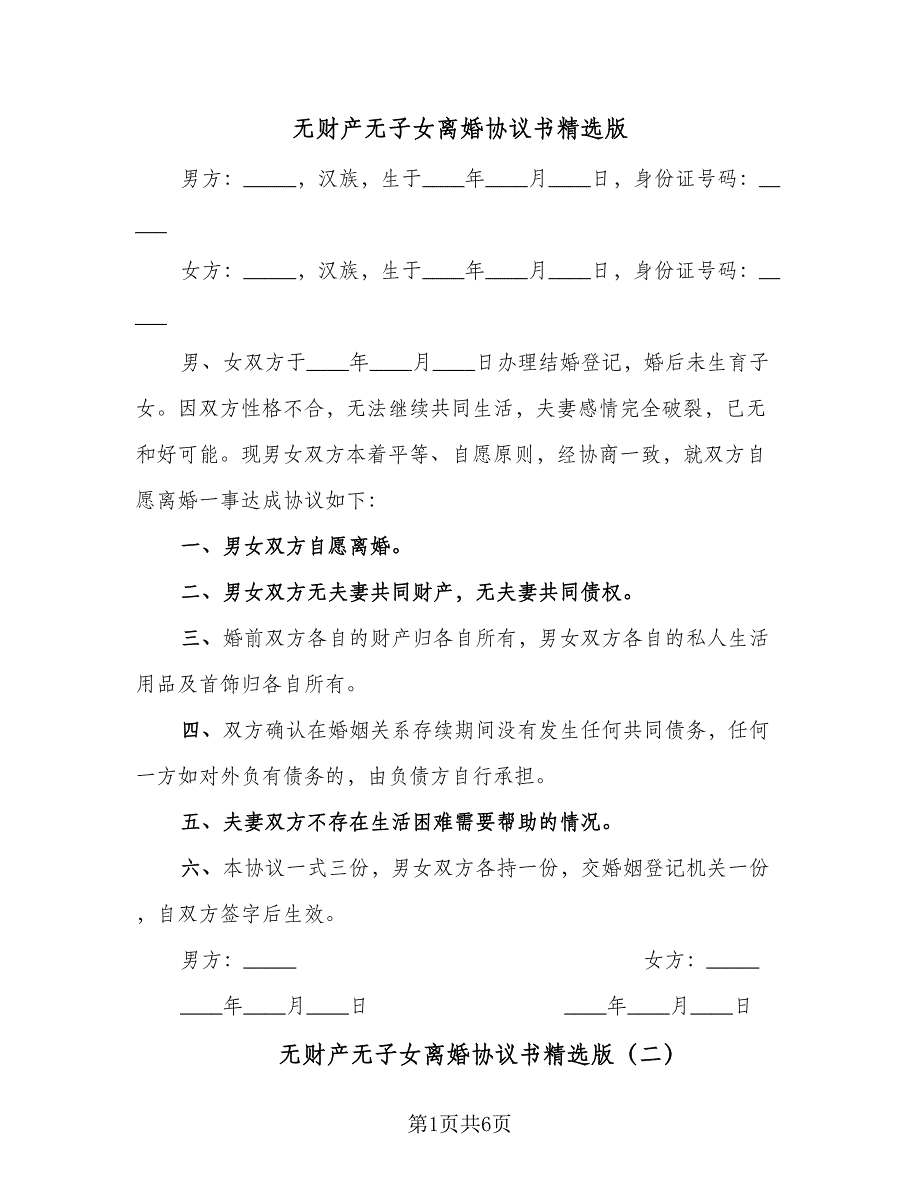 无财产无子女离婚协议书精选版
男方：_____，汉族，生于____年____月____日，身份证号码：__
___
女方：_____，汉族，生于____年____月____日，身份证号码：__
___
男、女双方于____年____月____日办理结婚登记，婚后未生育子
女。因双方性格不合，无法继续共同生活，夫妻感情完全破裂，已无
和好可能。现男女双方本着平等、自愿原则，经协商一致，就双方自
愿离婚一事达成协议如下：
一、男女双方自愿离婚。
二、男女双方无夫妻共同财产，无夫妻共同债权。
三、婚前双方各自的财产归各自所有，男女双方各自的私人生活
用品及首饰归各自所有。
四、双方确认在婚姻关系存续期间没有发生任何共同债务，任何
一方如对外负有债务的，由负债方自行承担。
五、夫妻双方不存在生活困难需要帮助的情况。
六、本协议一式三份，男女双方各持一份，交婚姻登记机关一份
，自双方签字后生效。
男方：_____ 女方：_____
____年____月____日 ____年____月____日
无财产无子女离婚协议书精选版（二）
第1页共6页